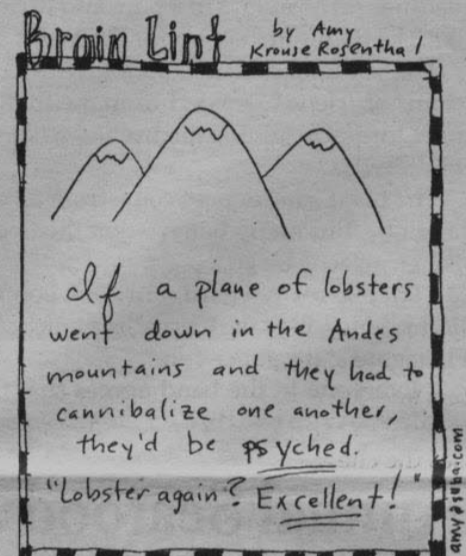 Brain Lint
by Amy
Krouse Rosenthal
If a plane of lobsters
went down in the Andes
mountains and they had to
cannibalize one another,
they'd be psyched.
"Lobster again? Excellent!"
amy@suba.com